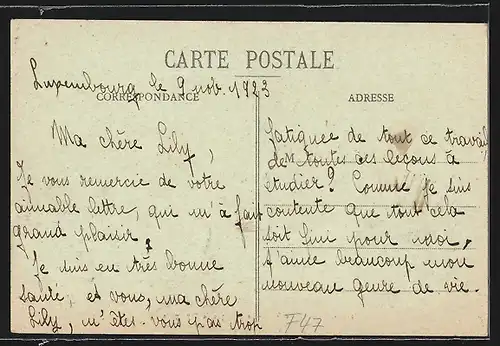 CARTE POSTALE
Luxembourg le 9 nov. 1923
CORRESPONDANCE
Ma chère Lily,
Je vous remercie de votre
aimable lettre, qui m'a fait
grand plaisir.
Je suis en très bonne
santé; et vous, ma chère
Lily, m'êtes-vous pas trop
ADRESSE
fatiguée de tout ce travail
M
de toutes ces leçons à
étudier? Comme je suis
contente que tout cela
soit fini pour moi,
j'aime beaucoup mon
nouveau genre de vie.
F47